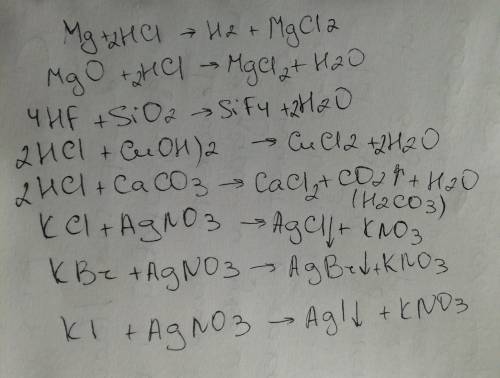 Mg+2HCl → H2 + MgCl2
MgO +2HCl → MgCl2+ H2O
4HF + SiO2 → SiF4 +2H2O
2HCl + CuOH)2 → CuCl2 +2H2O
2HCl + CaCO3 → CaCl2 + CO2↑ + H2O
(H2CO3)
KCl + AgNO3 → AgCl↓ + KNO3
KBr + AgNO3 → AgBr↓ + KNO3
KI + AgNO3 → AgI↓ + KNO3